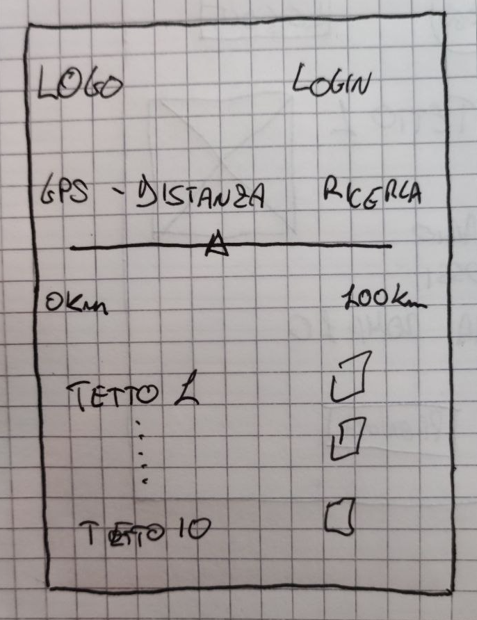 LOGO LOGIN
GPS - DISTANZA RICERCA
0Km 100Km
TETTO 1
TETTO 10